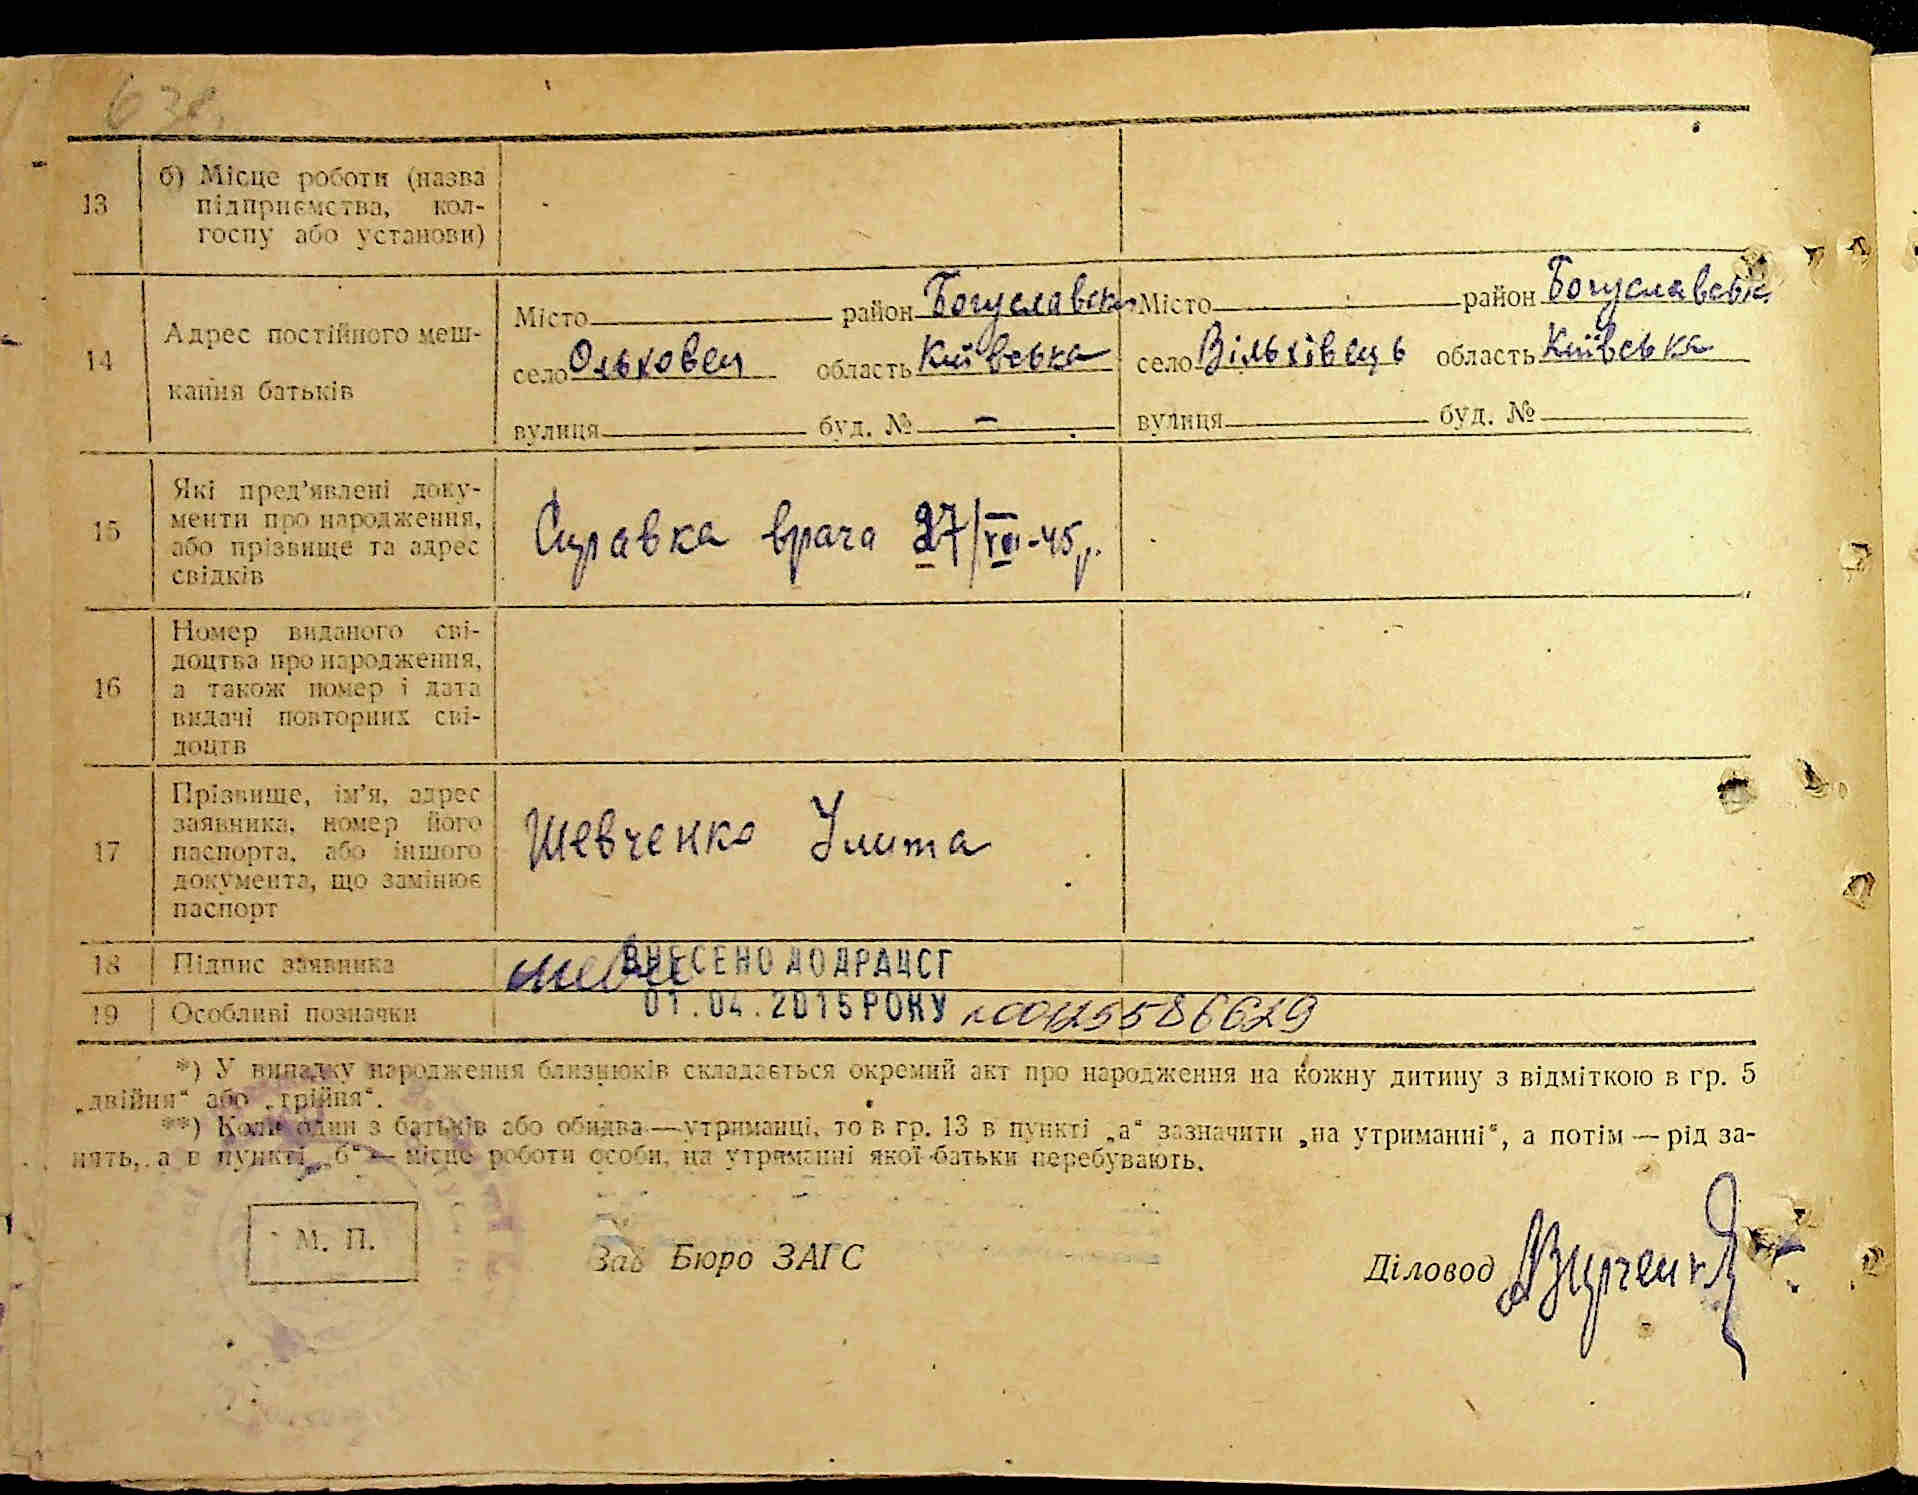 63
13
б) Місце роботи (назва
підприємства, кол-
госпу або установи)
14
Адрес постійного меш-
кання батьків
Місто район Богуславськ
село Ольховец область Київська
вулиця буд. № –
Місто район Богуславськ
село Вільхівець область Київська
вулиця буд. №
15
Які пред'явлені доку-
менти про народження,
або прізвище та адрес
свідків
Справка врача 27/VIII-45р.
16
Номер виданого сві-
доцтва про народження,
а також номер і дата
видачі повторних сві-
доцтв
17
Прізвище, ім'я, адрес
заявника, номер його
паспорта, або іншого
документа, що замінює
паспорт
Шевченко Улита
18
Підпис заявника
Шевч
ВНЕСЕНО ДО ДРАЦСГ
19
Особливі позначки
01.04.2015 РОКУ 00125586629
*) У випадку народження близнюків складається окремий акт про народження на кожну дитину з відміткою в гр. 5
„двійня“ або „трійня“.
**) Коли один з батьків або обидва — утриманці, то в гр. 13 в пункті „а“ зазначити „на утриманні“, а потім — рід за-
нять, а в пункті „б“ — місце роботи особи, на утриманні якої батьки перебувають.
М. П.
Зав Бюро ЗАГС
Діловод